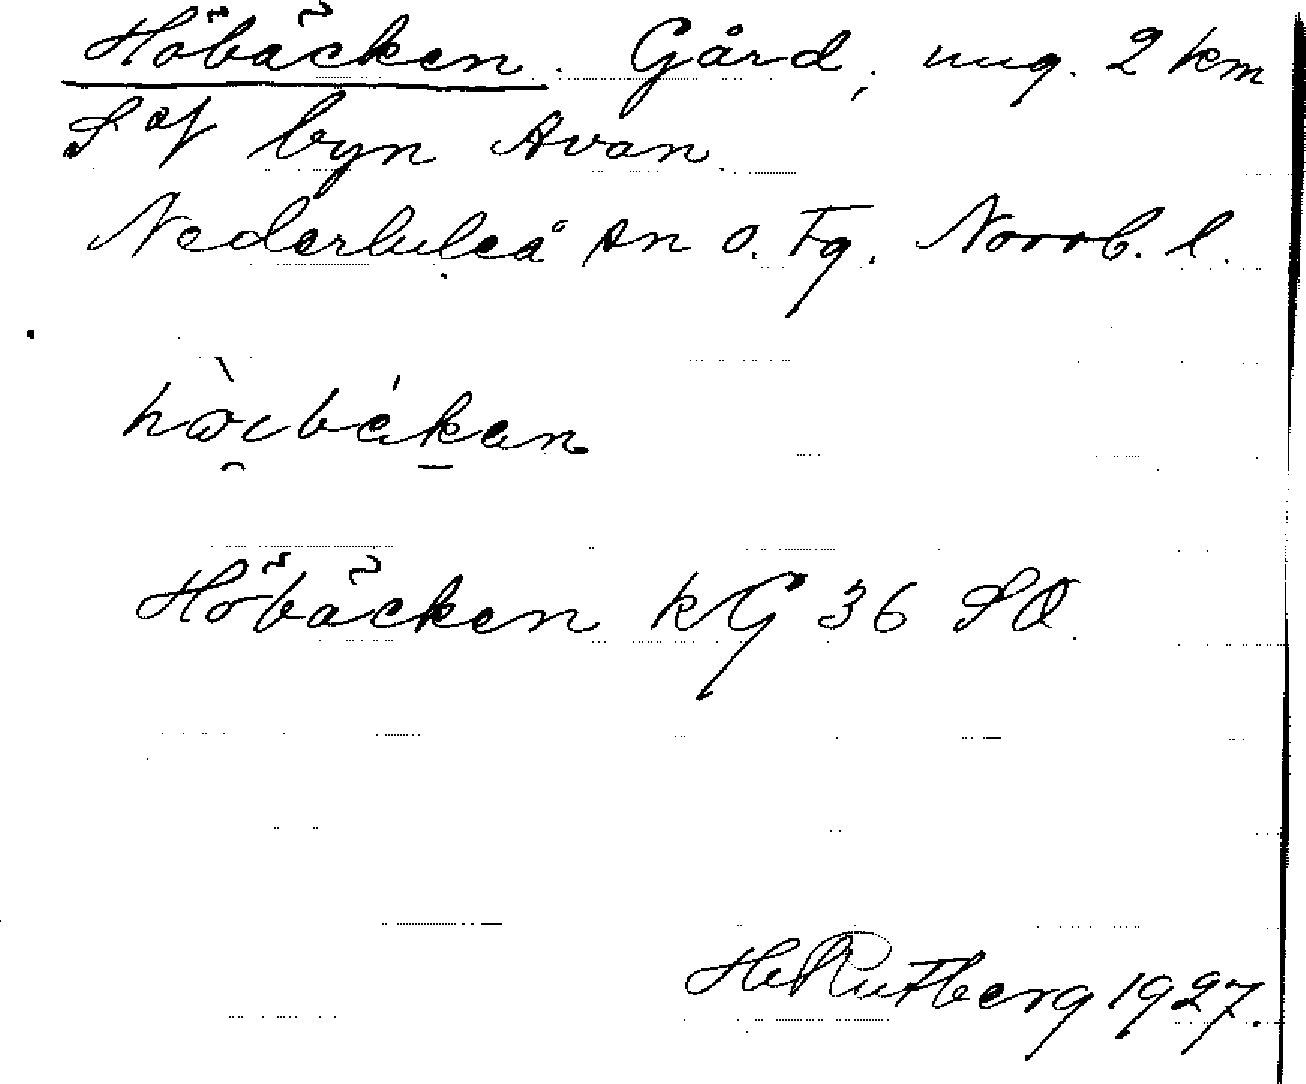 Höbäcken. Gård, ung. 2 km
S of byn Avan
Nederluleå sn o. Tg. Norrb. l.
Höbäcken kG 36 SO
H Rutberg 1927.